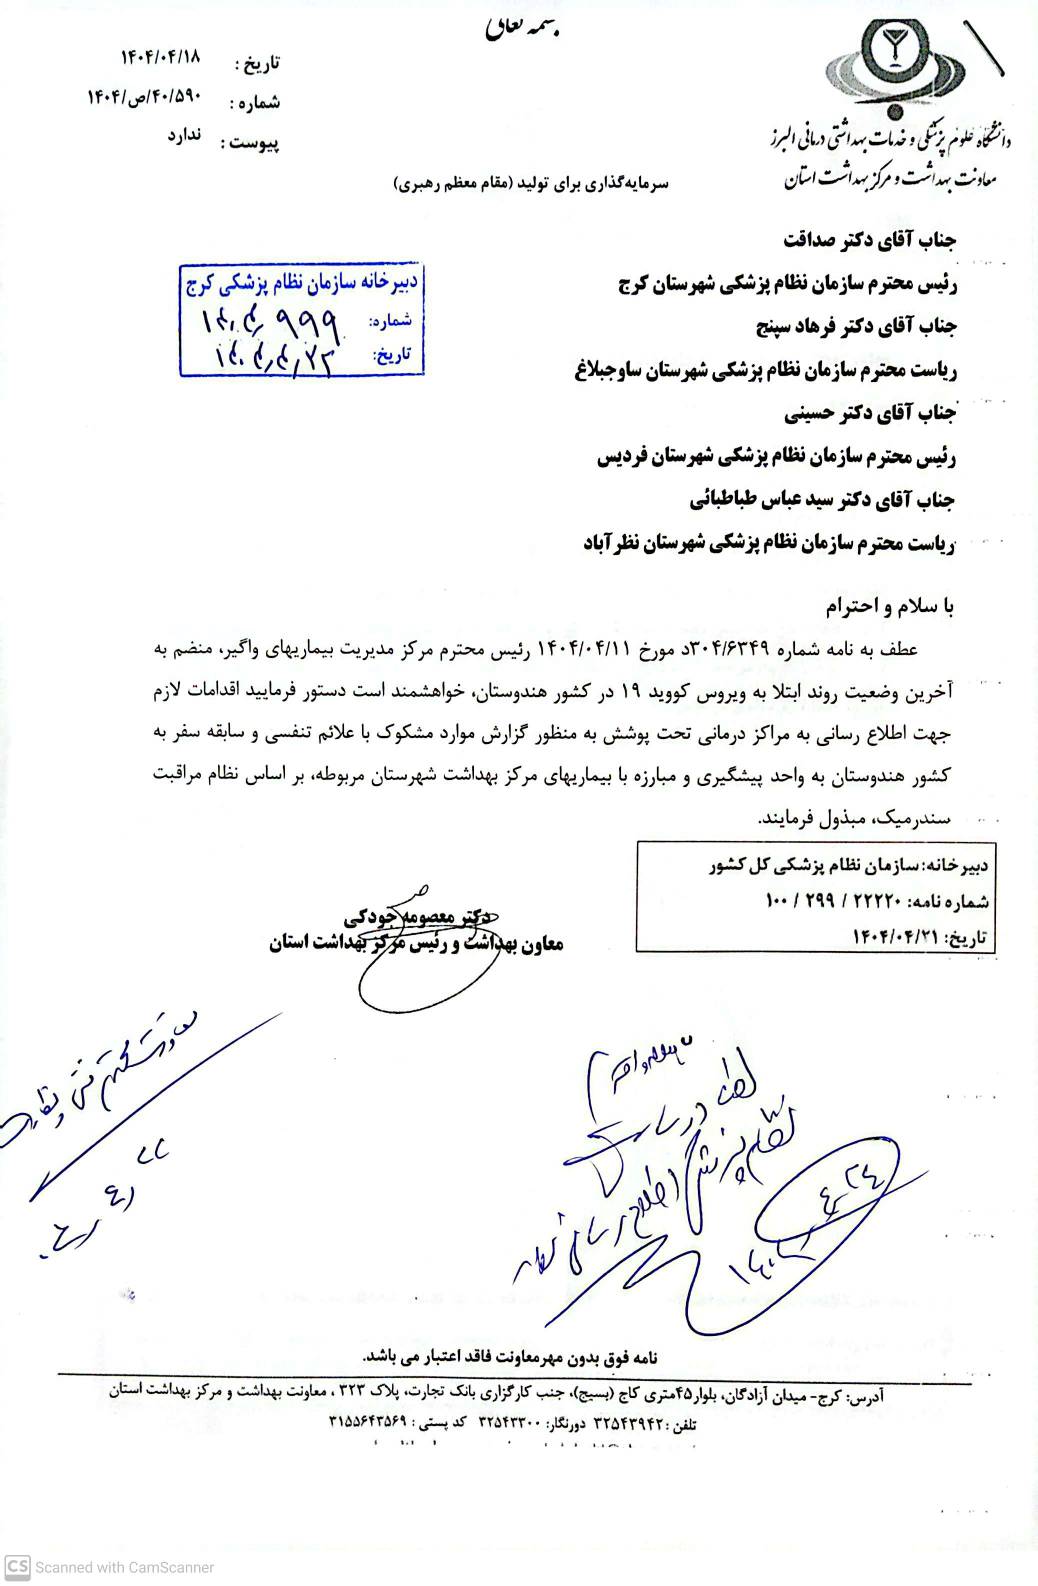 بسمه تعالی
دانشگاه علوم پزشکی و خدمات بهداشتی درمانی البرز
معاونت بهداشت و مرکز بهداشت استان
تاریخ : ۱۴۰۴/۰۴/۱۸
شماره : ۱۴۰۴/ص/۴۰/۵۹۰
پیوست : ندارد
سرمایه‌گذاری برای تولید (مقام معظم رهبری)
جناب آقای دکتر صداقت
رئیس محترم سازمان نظام پزشکی شهرستان کرج
جناب آقای دکتر فرهاد سپنج
ریاست محترم سازمان نظام پزشکی شهرستان ساوجبلاغ
جناب آقای دکتر حسینی
رئیس محترم سازمان نظام پزشکی شهرستان فردیس
جناب آقای دکتر سید عباس طباطبائی
ریاست محترم سازمان نظام پزشکی شهرستان نظرآباد
دبیرخانه سازمان نظام پزشکی کرج
شماره: ۹۹۹
تاریخ:
با سلام و احترام
عطف به نامه شماره ۳۰۴/۶۳۴۹د مورخ ۱۴۰۴/۰۴/۱۱ رئیس محترم مرکز مدیریت بیماریهای واگیر، منضم به
آخرین وضعیت روند ابتلا به ویروس کووید ۱۹ در کشور هندوستان، خواهشمند است دستور فرمایید اقدامات لازم
جهت اطلاع رسانی به مراکز درمانی تحت پوشش به منظور گزارش موارد مشکوک با علائم تنفسی و سابقه سفر به
کشور هندوستان به واحد پیشگیری و مبارزه با بیماریهای مرکز بهداشت شهرستان مربوطه، بر اساس نظام مراقبت
سندرمیک، مبذول فرمایند.
دبیرخانه: سازمان نظام پزشکی کل کشور
شماره نامه: ۲۲۲۲۰ / ۲۹۹ / ۱۰۰
تاریخ: ۱۴۰۴/۰۴/۲۱
دکتر معصومه جودکی
معاون بهداشت و رئیس مرکز بهداشت استان
لطفا در سایت
نظام پزشکی اطلاع رسانی
نامه فوق بدون مهرمعاونت فاقد اعتبار می باشد.
آدرس: کرج- میدان آزادگان، بلوار۴۵متری کاج (بسیج)، جنب کارگزاری بانک تجارت، پلاک ۳۲۳ ، معاونت بهداشت و مرکز بهداشت استان
تلفن : ۳۲۵۴۳۹۴۲ دورنگار: ۳۲۵۴۳۳۰۰ کد پستی : ۳۱۵۵۶۴۳۵۶۹
CS Scanned with CamScanner